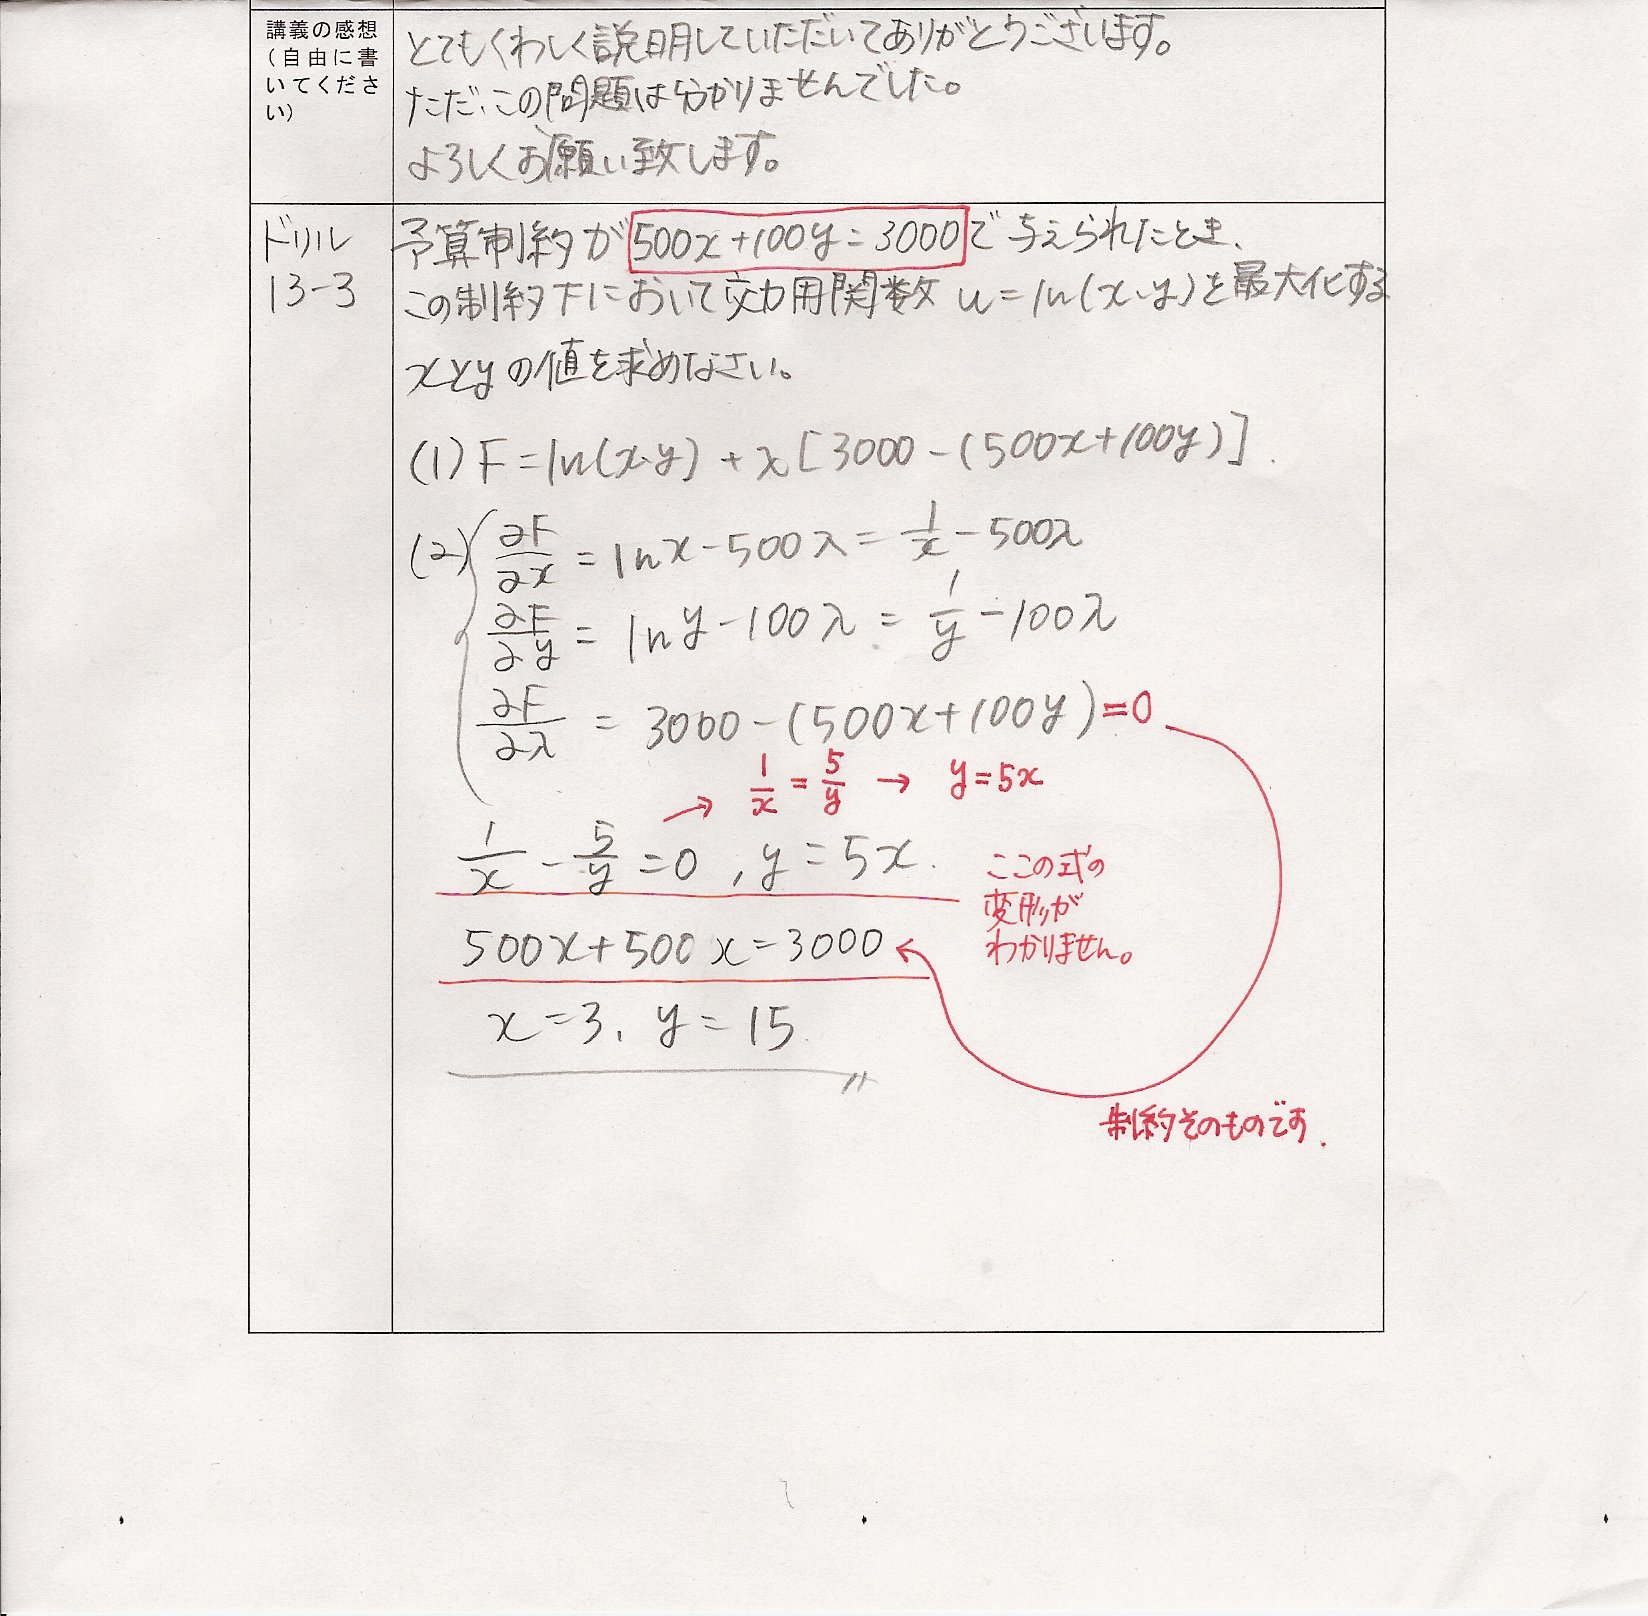 講義の感想
（自由に書
いてくださ
い）
とてもくわしく説明していただいてありがとうございます。
ただ、この問題は分かりませんでした。
よろしくお願い致します。
ドリル
13-3
予算制約が 500x+100y=3000 で与えられたとき、
この制約下において効用関数 u=ln(x・y)を最大化する
xとyの値を求めなさい。
(1) F=ln(x・y) + λ[3000-(500x+100y)]
(2) ∂F/∂x = ln x-500λ = 1/x-500λ
∂F/∂y = ln y-100λ = 1/y-100λ
∂F/∂λ = 3000-(500x+100y)=0
→ 1/x = 5/y → y=5x
1/x - 5/y =0 , y=5x.
ここの式の
変形が
わかりません。
500x+500x=3000
x=3, y=15
制約そのものです.